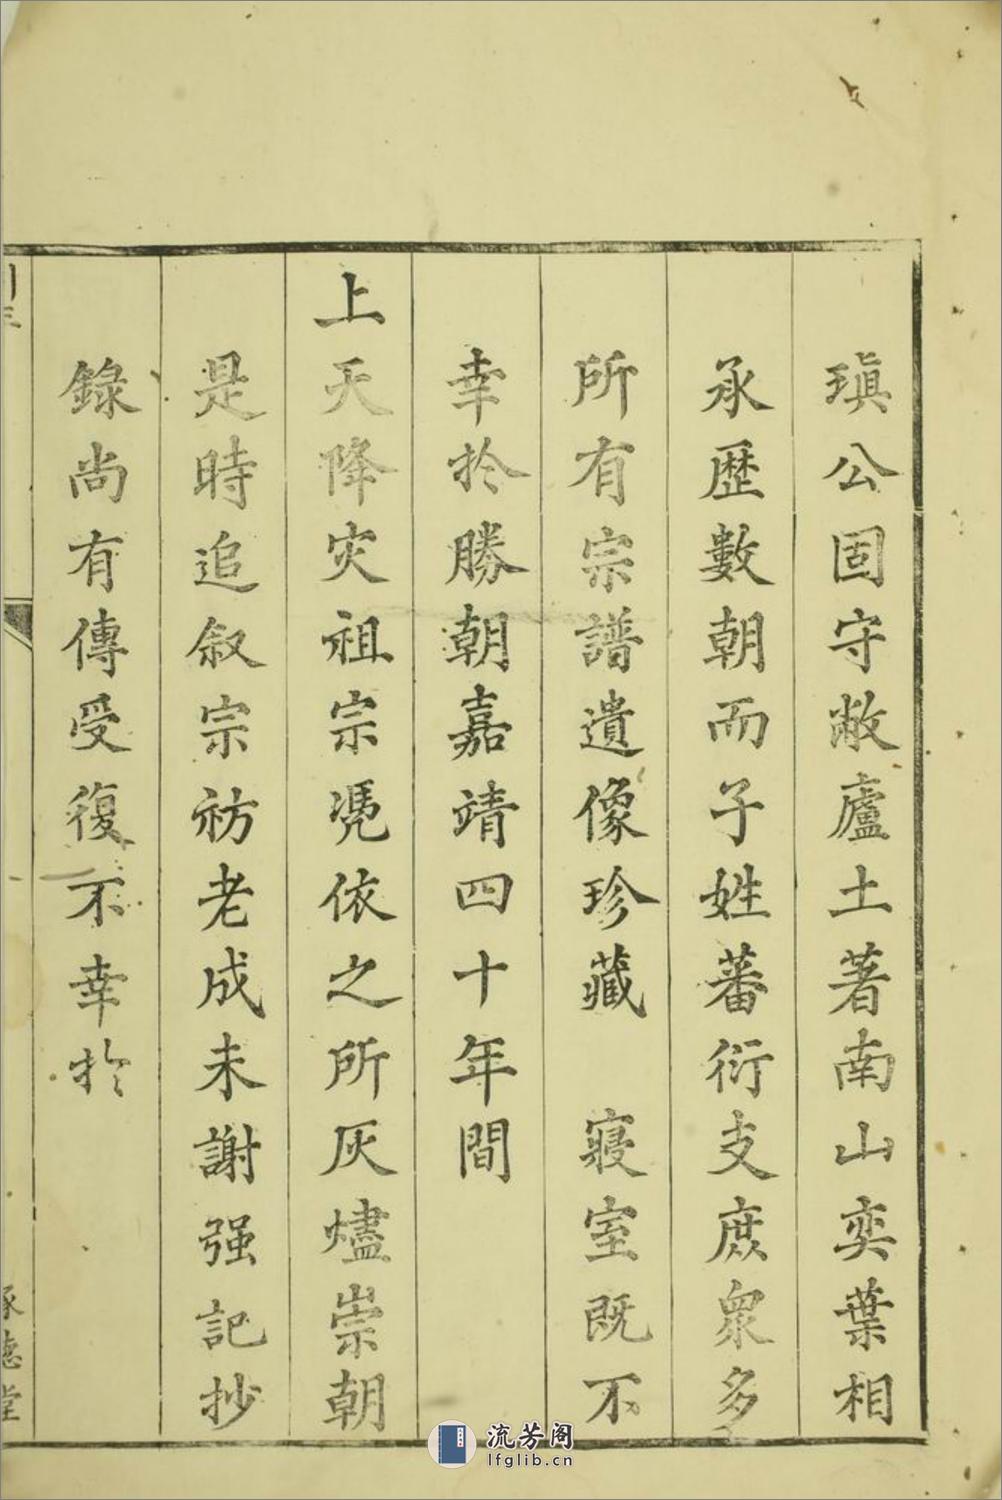 瑱公固守敝廬土著南山奕葉相
承歷數朝而子姓蕃衍支庶衆多
所有宗譜遺像珍藏　寢室既不
幸於勝朝嘉靖四十年間
上天降灾祖宗凴依之所灰燼崇朝
是時追叙宗祊老成未謝强記抄
錄尚有傳受復不幸於
德堂
流芳阁
lfglib.cn